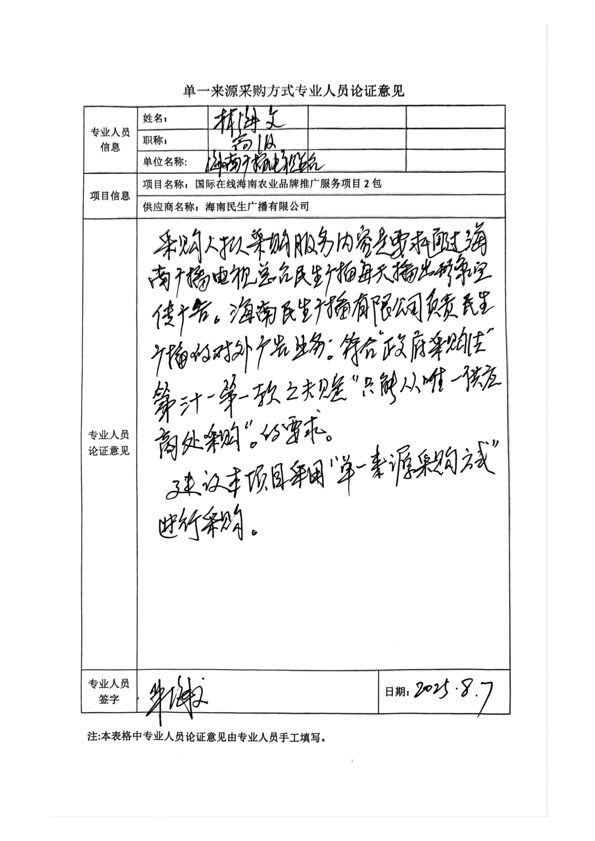 单一来源采购方式专业人员论证意见
专业人员信息
姓名: 林海文
职称: 高级
单位名称: 海南广播电视总台
项目信息
项目名称: 国际在线海南农业品牌推广服务项目2包
供应商名称: 海南民生广播有限公司
专业人员论证意见
采购人拟采购服务内容是要求通过海
南广播电视总台民生广播每天播出形象宣
传广告。海南民生广播有限公司负责民生
广播的对外广告业务。符合"政府采购法"
第三十一第一款之夫规定"只能从唯一供应
商处采购"。的要求。
建议本项目采用"单一来源采购方式"
进行采购。
专业人员签字
日期: 2025.8.7
注:本表格中专业人员论证意见由专业人员手工填写。